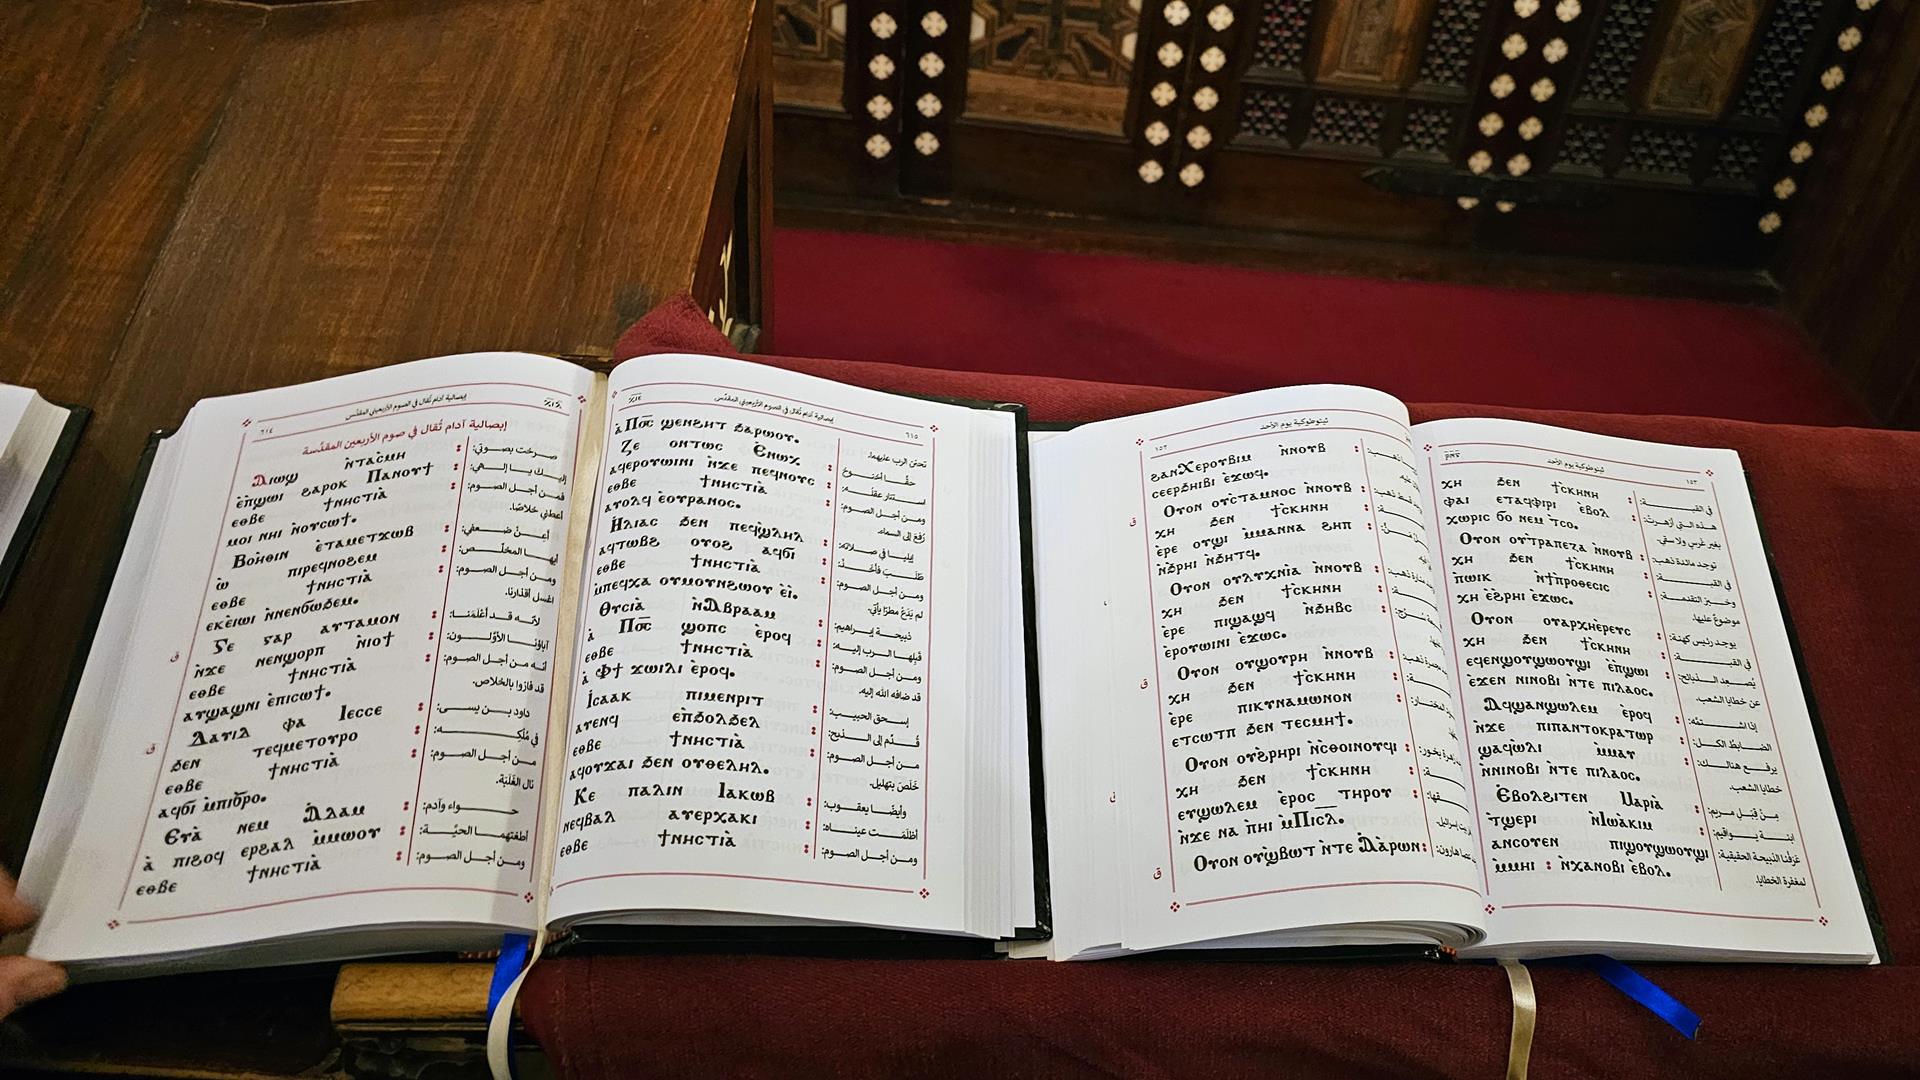 ٦١٤ إبصالية آدام تُقال في الصوم الأربعيني المقدَّس ⲭ̅ⲓ̅ⲇ̅
إبصالية آدام تُقال في صوم الأربعين المقدَّسة
Ⲁⲓⲱϣ ⲛ̀ⲧⲁⲥ̀ⲙⲏ : صرخت بصوتي:
ⲉ̀ⲡϣⲱⲓ ϩⲁⲣⲟⲕ Ⲡⲁⲛⲟⲩϯ : إليك يا إلهي:
ⲉⲑⲃⲉ ϯⲛⲏⲥⲧⲓⲁ̀ : فمن أجل الصوم:
ⲙⲟⲓ ⲛⲏⲓ ⲛ̀ⲟⲩⲥⲱϯ. أعطني خلاصًا.
Ⲃⲟⲏ̀ⲑⲓⲛ ⲉ̀ⲧⲁⲙⲉⲧϫⲱⲃ : أعِنْ ضعفي:
ⲱ̀ ⲡⲓⲣⲉϥⲛⲟϩⲉⲙ : أيها المخلّص:
ⲉⲑⲃⲉ ϯⲛⲏⲥⲧⲓⲁ̀ : ومن أجل الصوم:
ⲉⲕⲉ̀ⲓⲱⲓ ⲛ̀ⲛⲉⲛϭⲱϧⲉⲙ. اغسل أقذارنا.
Ϫⲉ ⲅⲁⲣ ⲁⲩⲧⲁⲙⲟⲛ : لأنه قد أعْلَمَنا:
ⲛ̀ϫⲉ ⲛⲉⲛϣⲟⲣⲡ ⲛ̀ⲓⲟϯ : آباؤنا الأوّلون:
ⲉⲑⲃⲉ ϯⲛⲏⲥⲧⲓⲁ̀ : أنه من أجل الصوم:
ⲁⲩϣⲁϣⲛⲓ ⲉ̀ⲡⲓⲥⲱϯ. قد فازوا بالخلاص.
Ⲇⲁⲩⲓⲇ ⲫⲁ Ⲓⲉⲥⲥⲉ : داود بن يسى:
ϧⲉⲛ ⲧⲉϥⲙⲉⲧⲟⲩⲣⲟ : في مُلكِه:
ⲉⲑⲃⲉ ϯⲛⲏⲥⲧⲓⲁ̀ : من أجل الصوم:
ⲁϥϭⲓ ⲙ̀ⲡⲓϭⲣⲟ. نال الغَلَبَة.
Ⲉⲩⲁ̀ ⲛⲉⲙ Ⲁⲇⲁⲙ : حواء وآدم:
ⲁ̀ ⲡⲓϩⲟϥ ⲉⲣϩⲁⲗ ⲙ̀ⲙⲱⲟⲩ : أطغتهما الحيَّة:
ⲉⲑⲃⲉ ϯⲛⲏⲥⲧⲓⲁ̀ : ومن أجل الصوم:
ⲭ̅ⲓ̅ⲉ̅ إبصالية آدام تُقال في الصوم الأربعيني المقدَّس ٦١٥
ⲁ̀ Ⲡⲟ̅ⲥ̅ ϣⲉⲛϩⲏⲧ ϧⲁⲣⲱⲟⲩ. تحنَّن الرب عليهما.
Ⲍⲉ ⲟⲛⲧⲱⲥ Ⲉⲛⲱⲭ : حقًّا أخنوخ
ⲁϥⲉⲣⲟⲩⲱⲓⲛⲓ ⲛ̀ϫⲉ ⲡⲉϥⲛⲟⲩⲥ : استنار عقلُه:
ⲉⲑⲃⲉ ϯⲛⲏⲥⲧⲓⲁ̀ : ومن أجل الصوم:
ⲁⲩⲟⲗϥ ⲉ̀ⲟⲩⲣⲁⲛⲟⲥ. رُفِعَ إلى السماء.
Ⲏⲗⲓⲁⲥ ϧⲉⲛ ⲡⲉϥϣ̀ⲗⲏⲗ : إيليا في صلاته:
ⲁϥⲧⲱⲃϩ ⲟⲩⲟϩ ⲁϥϭⲓ : طَلَبَ فأخَذَ:
ⲉⲑⲃⲉ ϯⲛⲏⲥⲧⲓⲁ̀ : ومن أجل الصوم:
ⲙ̀ⲡⲉϥⲭⲁ ⲟⲩⲙⲟⲩⲛϩⲱⲟⲩ ⲉ̀ⲓ̀. لم يَدَعْ مطرًا يأتي.
Ⲑⲩⲥⲓⲁ̀ ⲛ̀Ⲁⲃⲣⲁⲁⲙ : ذبيحة إبراهيم:
ⲁ̀ Ⲡⲟ̅ⲥ̅ ϣⲟⲡⲥ ⲉ̀ⲣⲟϥ : قبلها الرب إليه:
ⲉⲑⲃⲉ ϯⲛⲏⲥⲧⲓⲁ̀ : ومن أجل الصوم:
ⲁ̀ Ⲫϯ ϫⲱⲓⲗⲓ ⲉ̀ⲣⲟϥ. قد ضافه الله إليه.
Ⲓⲥⲁⲁⲕ ⲡⲓⲙⲉⲛⲣⲓⲧ : إسحق الحبيب:
ⲁⲩⲉⲛϥ ⲉ̀ⲡϧⲟⲗϧⲉⲗ : قُدِّم إلى الذبح:
ⲉⲑⲃⲉ ϯⲛⲏⲥⲧⲓⲁ̀ : من أجل الصوم:
ⲁϥⲟⲩϫⲁⲓ ϧⲉⲛ ⲟⲩⲑⲉⲗⲏⲗ. خَلَصَ بتهليل.
Ⲕⲉ ⲡⲁⲗⲓⲛ Ⲓⲁⲕⲱⲃ : وأيضًا يعقوب:
ⲛⲉϥⲃⲁⲗ ⲁⲩⲉⲣⲭⲁⲕⲓ : أظلَمَت عيناه:
ⲉⲑⲃⲉ ϯⲛⲏⲥⲧⲓⲁ̀ : ومن أجل الصوم:
١٥٢ ثيئوطوكية يوم الأحد
ϩⲁⲛⲬⲉⲣⲟⲩⲃⲓⲙ ⲛ̀ⲛⲟⲩⲃ :
ⲥⲉⲉⲣϧⲏⲓⲃⲓ ⲉ̀ϫⲱϥ.
Ⲟⲩⲟⲛ ⲟⲩⲥ̀ⲧⲁⲙⲛⲟⲥ ⲛ̀ⲛⲟⲩⲃ :
ⲭⲏ ϧⲉⲛ ϯⲥ̀ⲕⲏⲛⲏ :
ⲉ̀ⲣⲉ ⲟⲩϣⲓ ⲙ̀ⲙⲁⲛⲛⲁ ϩⲏⲡ :
ⲛ̀ϧ̀ⲣⲏⲓ ⲛ̀ϧⲏⲧϥ.
Ⲟⲩⲟⲛ ⲟⲩⲗⲩⲭⲛⲓⲁ̀ ⲛ̀ⲛⲟⲩⲃ :
ⲭⲏ ϧⲉⲛ ϯⲥ̀ⲕⲏⲛⲏ :
ⲉ̀ⲣⲉ ⲡⲓϣⲁϣϥ ⲛ̀ϧⲏⲃⲥ :
ⲉ̀ⲣⲟⲩⲱⲓⲛⲓ ⲉ̀ϫⲱⲥ.
Ⲟⲩⲟⲛ ⲟⲩϣⲟⲩⲣⲏ ⲛ̀ⲛⲟⲩⲃ :
ⲭⲏ ϧⲉⲛ ϯⲥ̀ⲕⲏⲛⲏ :
ⲉ̀ⲣⲉ ⲡⲓⲕⲩⲛⲁⲙⲱⲙⲟⲛ :
ⲉⲧⲥⲱⲧⲡ ϧⲉⲛ ⲧⲉⲥⲙⲏϯ.
Ⲟⲩⲟⲛ ⲟⲩϩ̀ⲣⲏⲣⲓ ⲛ̀ⲥⲑⲟⲓⲛⲟⲩϥⲓ :
ⲭⲏ ϧⲉⲛ ϯⲥ̀ⲕⲏⲛⲏ :
ⲉⲩϣⲱⲗⲉⲙ ⲉ̀ⲣⲟⲥ ⲧⲏⲣⲟⲩ :
ⲛ̀ϫⲉ ⲛⲁ ⲡ̀ⲏⲓ ⲙ̀Ⲡⲓⲥⲗ.
Ⲟⲩⲟⲛ ⲟⲩϣ̀ⲃⲱⲧ ⲛ̀ⲧⲉ Ⲁⲁⲣⲱⲛ :
ⲣ̅ⲛ̅ⲅ̅ ثيئوطوكية يوم الأحد ١٥٣
ⲭⲏ ϧⲉⲛ ϯⲥ̀ⲕⲏⲛⲏ : في القبة:
ⲫⲁⲓ ⲉⲧⲁϥⲫⲓⲣⲓ ⲉ̀ⲃⲟⲗ : هذه التي أزهرت:
ⲭⲱⲣⲓⲥ ϭⲟ ⲛⲉⲙ ⲧ̀ⲥⲟ. بغير غَرسٍ ولا سقي.
Ⲟⲩⲟⲛ ⲟⲩⲧ̀ⲣⲁⲡⲉⲍⲁ ⲛ̀ⲛⲟⲩⲃ : توجد مائدة ذهب:
ⲭⲏ ϧⲉⲛ ϯⲥ̀ⲕⲏⲛⲏ : في القبة:
ⲡⲱⲓⲕ ⲛ̀ϯⲡⲣⲟⲑⲉⲥⲓⲥ : وخبز التقدمة:
ⲭⲏ ⲉ̀ϩ̀ⲣⲏⲓ ⲉ̀ϫⲱⲥ. موضوعٌ عليها.
Ⲟⲩⲟⲛ ⲟⲩⲁⲣⲭⲏⲉ̀ⲣⲉⲩⲥ : يوجد رئيس كهنة:
ⲭⲏ ϧⲉⲛ ϯⲥ̀ⲕⲏⲛⲏ : في القبة:
ⲉϥⲉⲛϣⲟⲩϣⲱⲟⲩϣⲓ ⲉ̀ⲡϣⲱⲓ : يُصعد الذبائح:
ⲉ̀ϫⲉⲛ ⲛⲓⲛⲟⲃⲓ ⲛ̀ⲧⲉ ⲡⲓⲗⲁⲟⲥ. عن خطايا الشعب.
Ⲁϥϣⲁⲛϣⲱⲗⲉⲙ ⲉ̀ⲣⲟϥ : إذا اشتمَّه:
ⲛ̀ϫⲉ ⲡⲓⲡⲁⲛⲧⲟⲕⲣⲁⲧⲱⲣ : الضابط الكل:
ϣⲁϥⲱⲗⲓ ⲙ̀ⲙⲁⲩ : يرفع هنالك:
ⲛ̀ⲛⲓⲛⲟⲃⲓ ⲛ̀ⲧⲉ ⲡⲓⲗⲁⲟⲥ. خطايا الشعب.
Ⲉⲃⲟⲗϩⲓⲧⲉⲛ Ⲙⲁⲣⲓⲁ̀ : مِنْ قِبَلِ مريم:
ⲧ̀ϣⲉⲣⲓ ⲛ̀Ⲓⲱⲁ̀ⲕⲓⲙ : ابنة يواقيم:
ⲁⲛⲥⲟⲩⲉⲛ ⲡⲓϣⲟⲩϣⲱⲟⲩϣⲓ : عَرَفْنا الذبيحة الحقيقية:
ⲙ̀ⲙⲏⲓ : ⲛ̀ⲭⲁⲛⲟⲃⲓ ⲉ̀ⲃⲟⲗ. لمغفرة الخطايا.